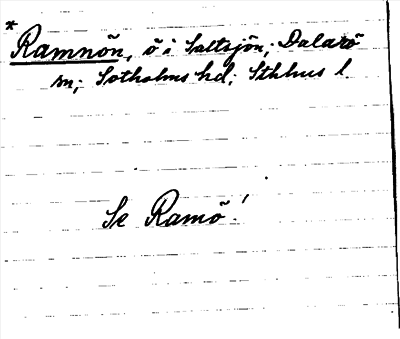 * Ramnön, ö i Saltsjön; Dalarö
sn; Sotholms hd; Sthlms l.
Se Ramö!